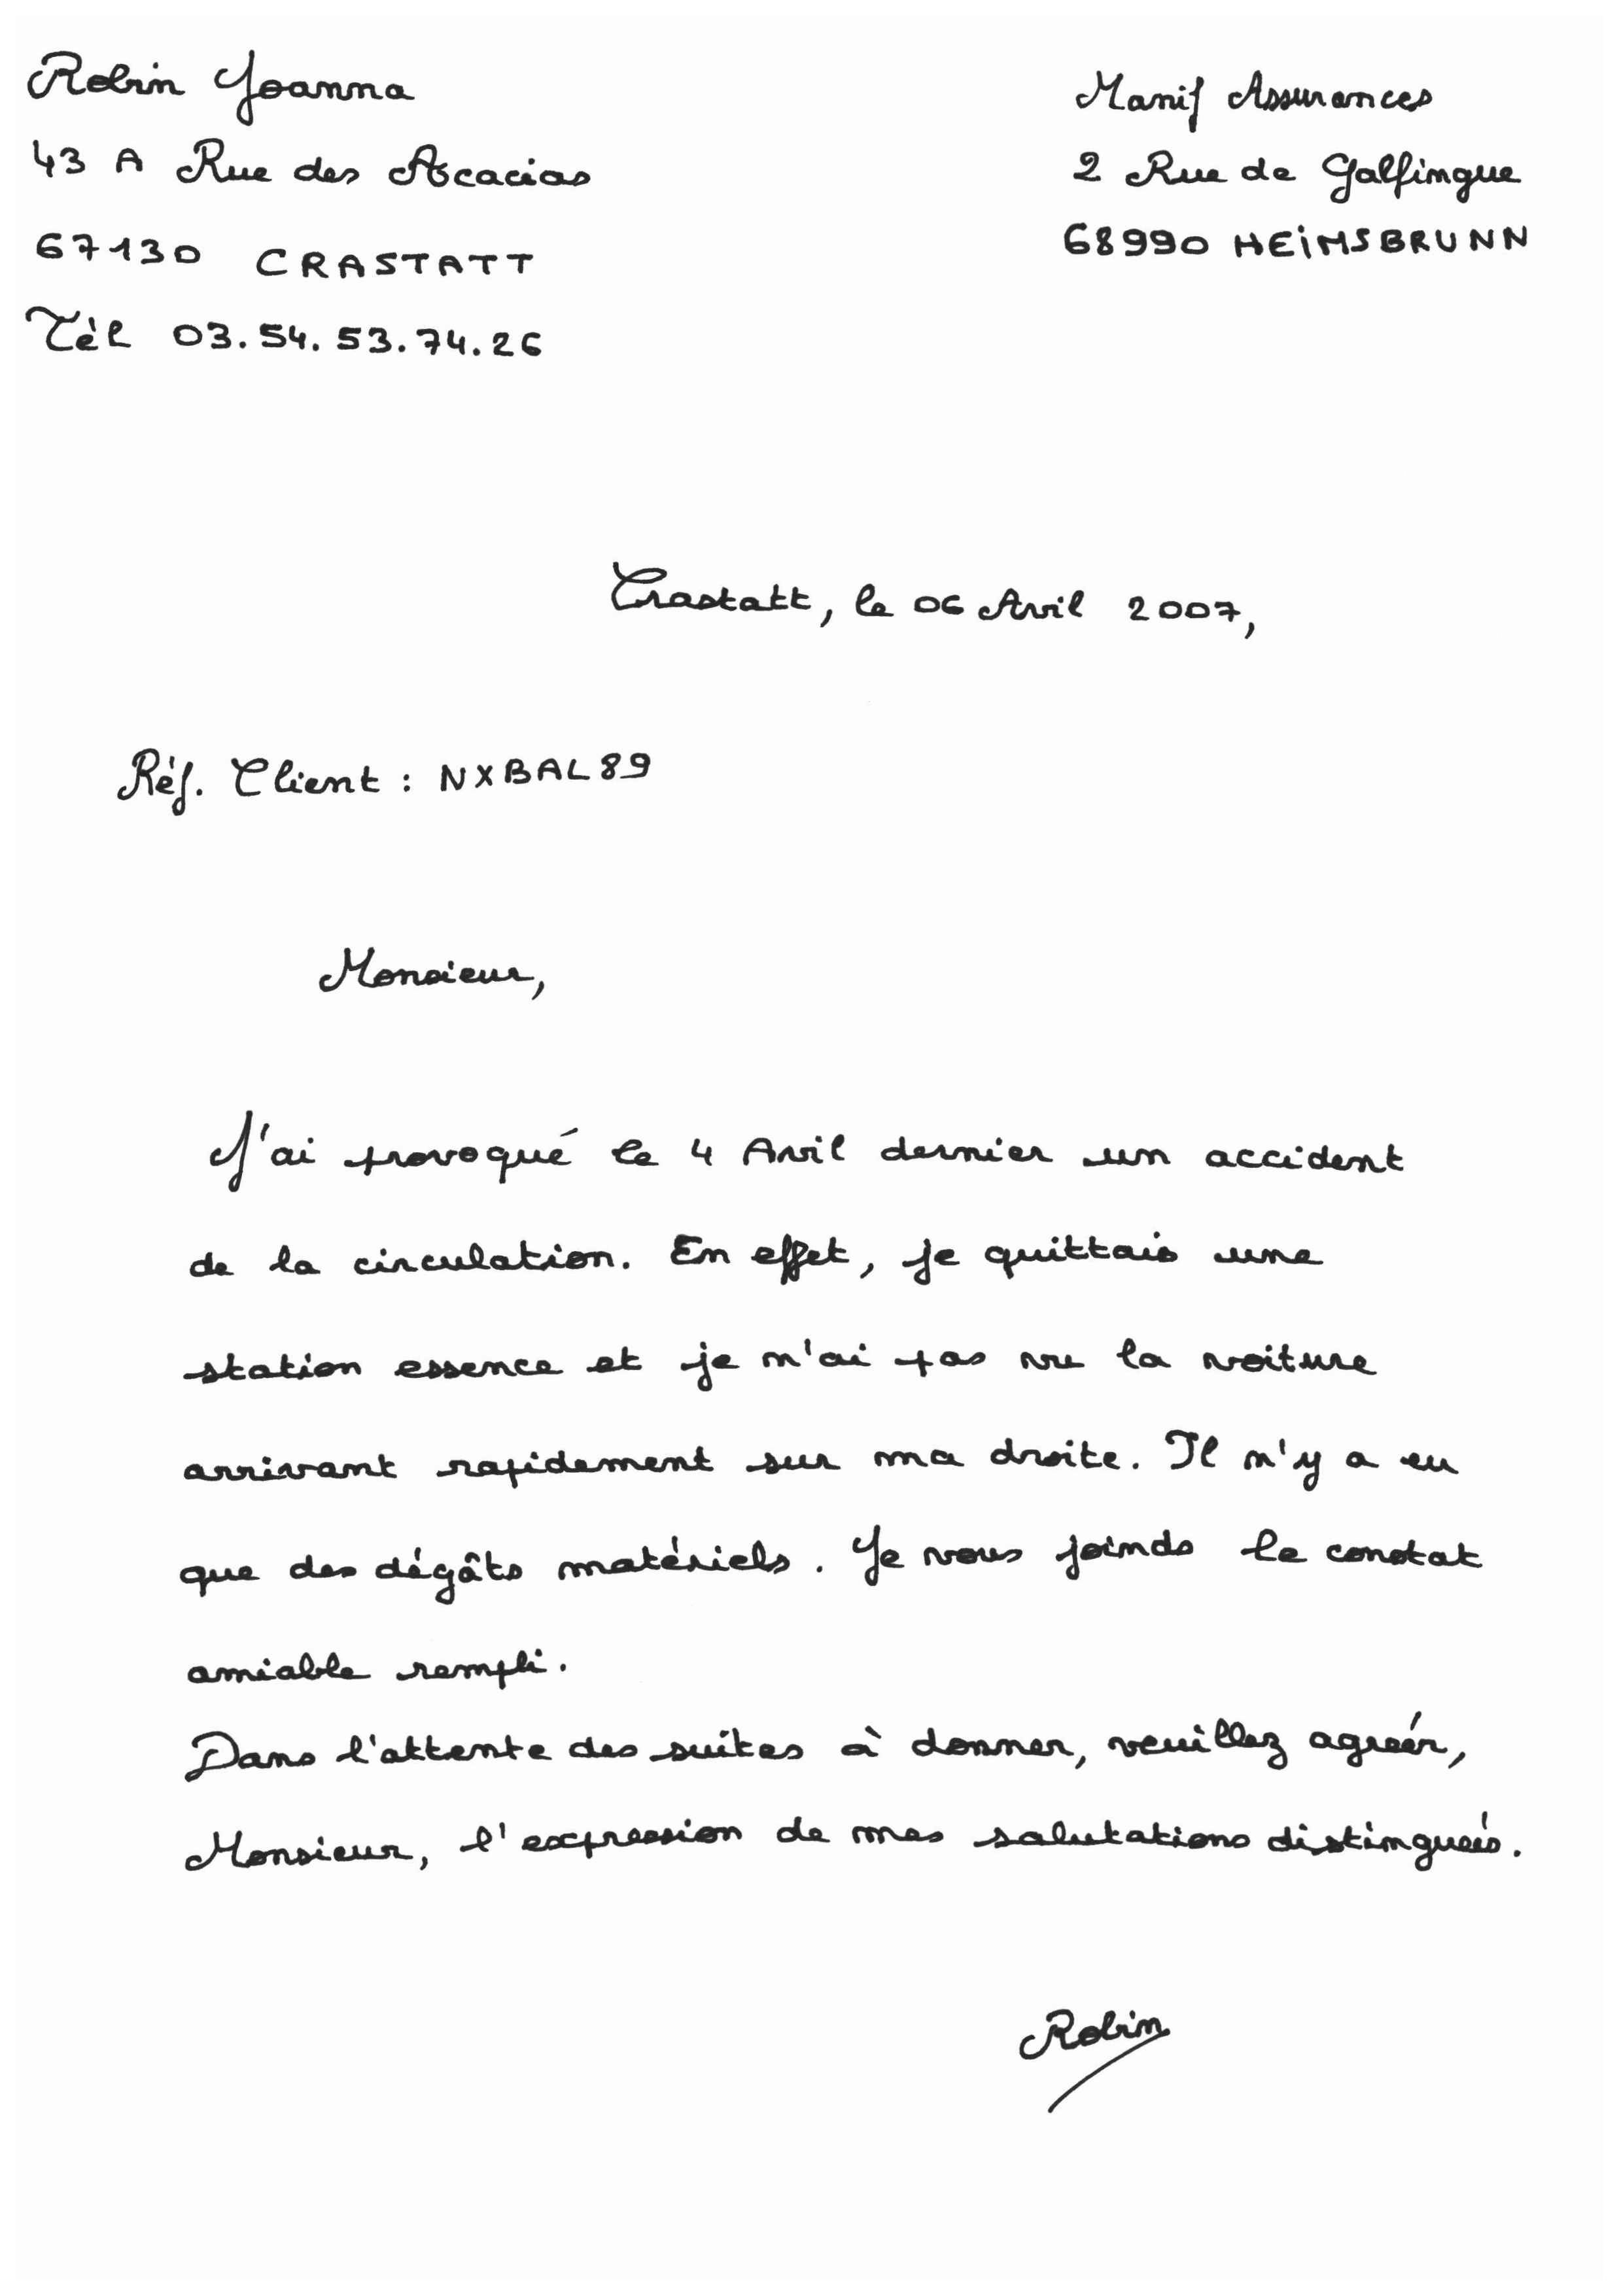 Robin Joanna
43 A Rue des Acacias
67130 CRASTATT
Tèl 03.54.53.74.26
Manif Assurances
2 Rue de Galfingue
68990 HEiMSBRUNN
Crastatt, le 06 Avril 2007,
Réf. Client : NXBAL89
Monsieur,
J'ai provoqué le 4 Avril dernier un accident
de la circulation. En effet, je quittais une
station essence et je n'ai pas vu la voiture
arrivant rapidement sur ma droite. Il n'y a eu
que des dégâts matériels. Je vous joinds le constat
amiable rempli.
Dans l'attente des suites à donner, veuillez agréer,
Monsieur, l'expression de mes salutations distingués.
Robin